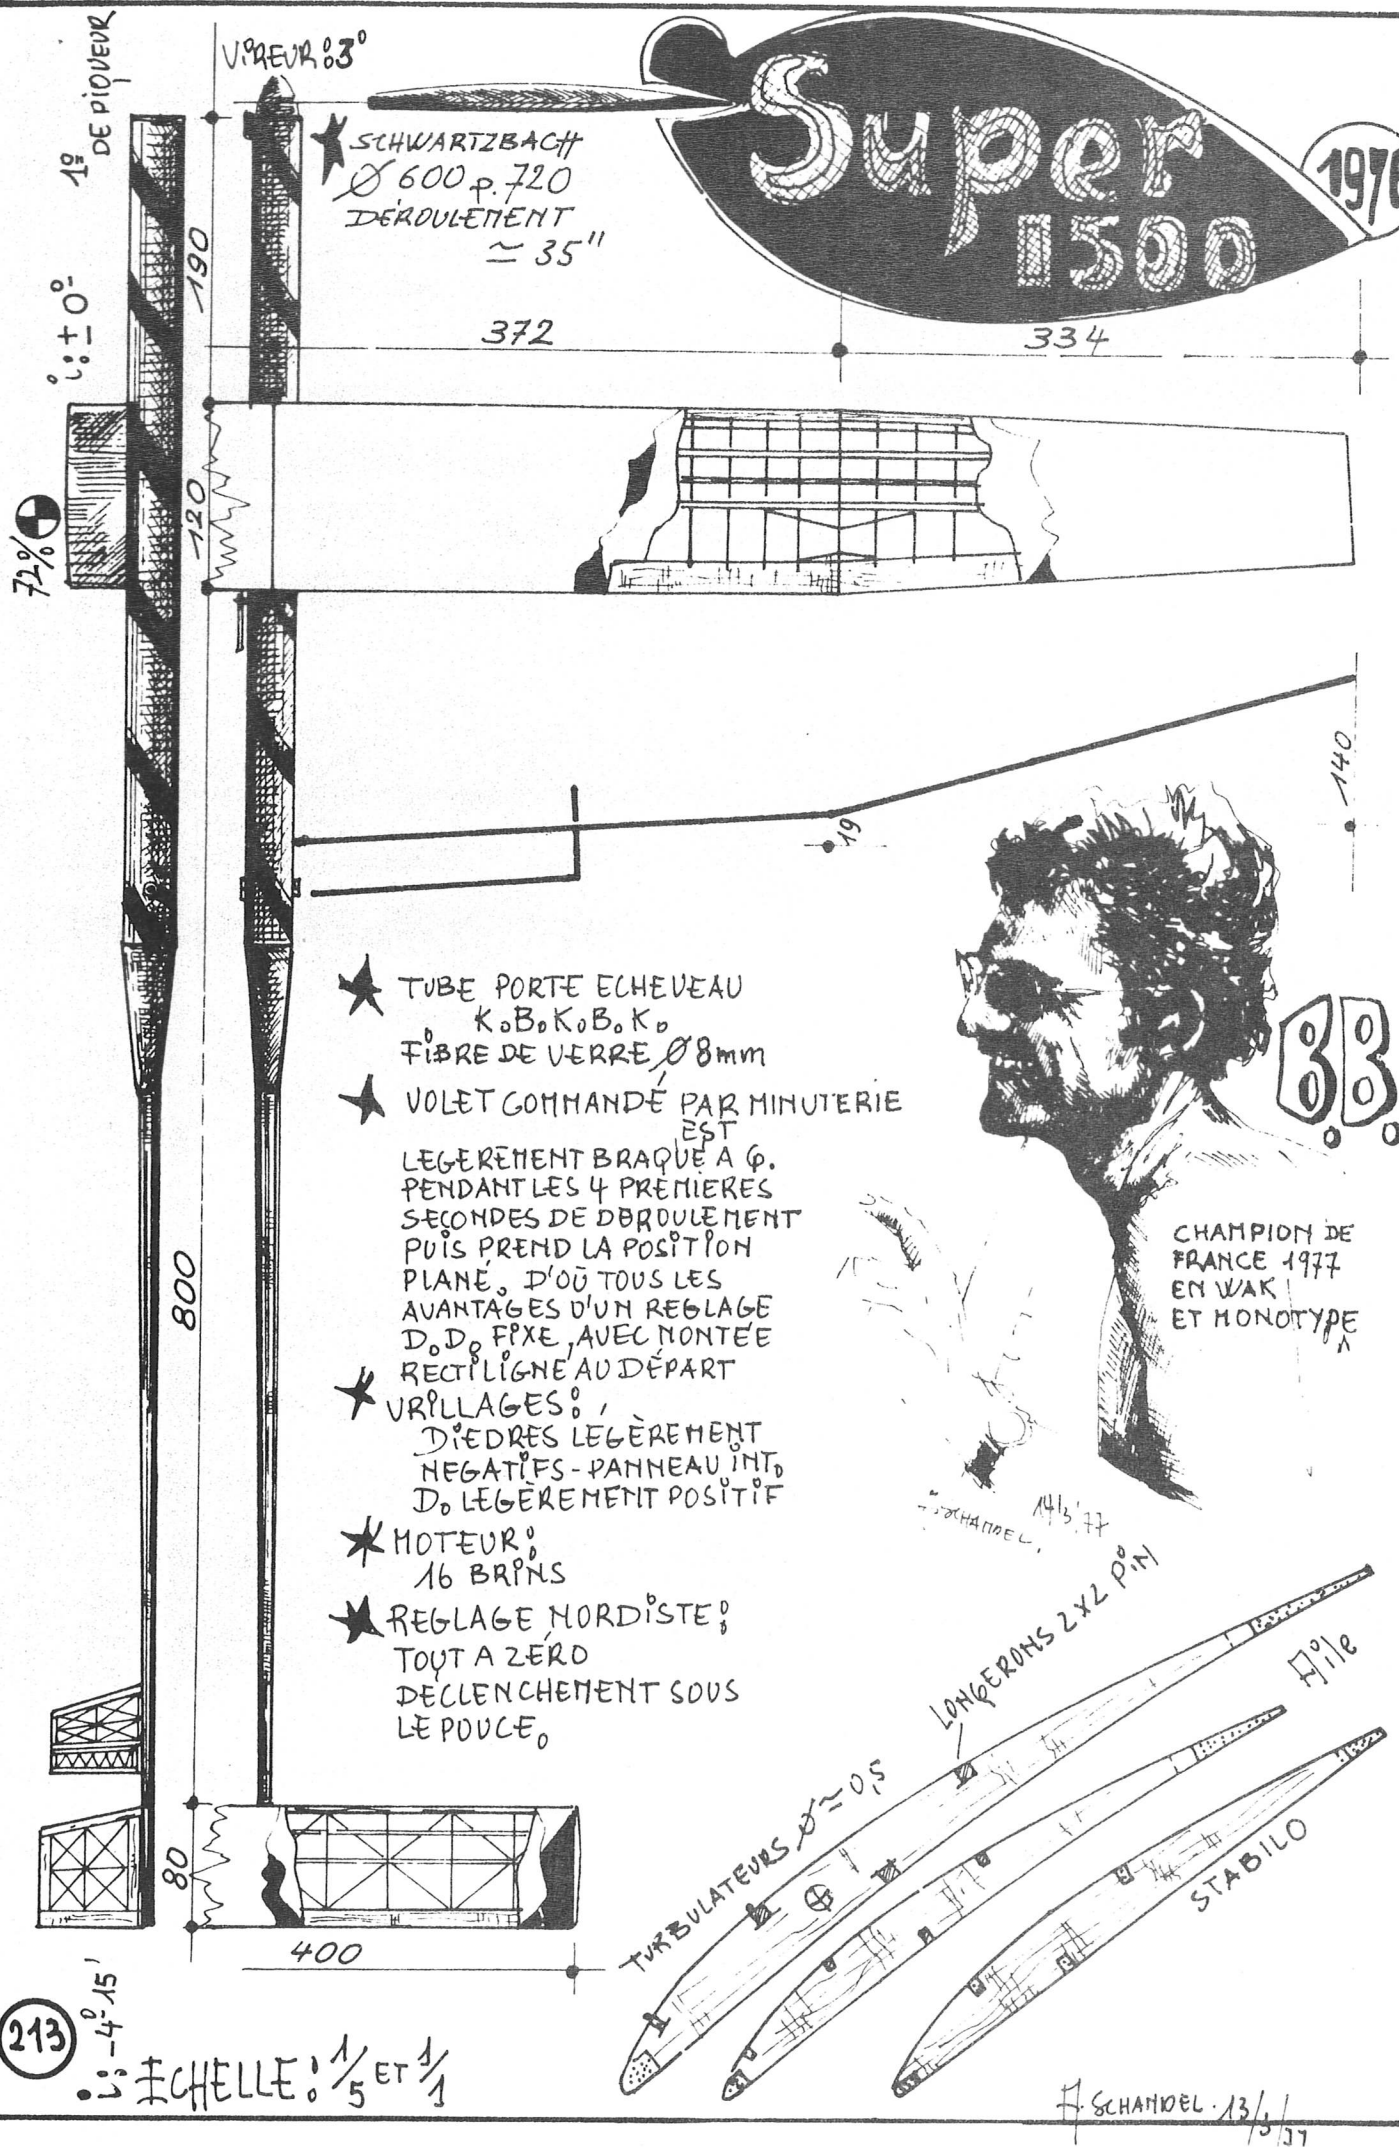 VIREUR: 3°
1° DE PIQUEUR
SCHWARTZBACH
Ø 600 p. 720
DEROULEMENT
≃ 35"
Super
1500
190
i: ± 0°
372
334
120
72%
140
19
TUBE PORTE ECHEVEAU
K.B.K.B.K.
FIBRE DE VERRE Ø 8mm
VOLET COMMANDÉ PAR MINUTERIE
EST
LEGEREMENT BRAQUÉ A G.
PENDANT LES 4 PREMIERES
SECONDES DE DEROULEMENT
PUIS PREND LA POSITION
PLANÉ. D'OÙ TOUS LES
AVANTAGES D'UN REGLAGE
D.D. FIXE, AVEC MONTÉE
RECTILIGNE AU DÉPART
VRILLAGES:
DIEDRES LEGÈREMENT
NEGATIFS - PANNEAU INT.
D. LEGÈREMENT POSITIF
MOTEUR:
16 BRINS
REGLAGE NORDISTE:
TOUT A ZÉRO
DECLENCHEMENT SOUS
LE POUCE.
B.B.
CHAMPION DE
FRANCE 1977
EN WAK
ET MONOTYPE
SCHANDEL. 14/3.77
800
80
400
LONGERONS 2x2 PIN
Aile
TURBULATEURS Ø ≃ 0,5
STABILO
213
i: -4° 15'
ECHELLE: 1/5 ET 1/1
A. SCHANDEL. 13/3/77